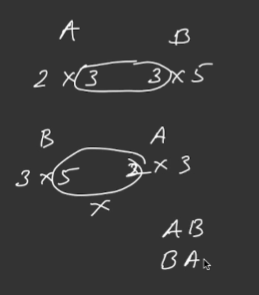 A B
2 × 3 3 × 5
B A
3 × 5 2 × 3
×
A B
B A